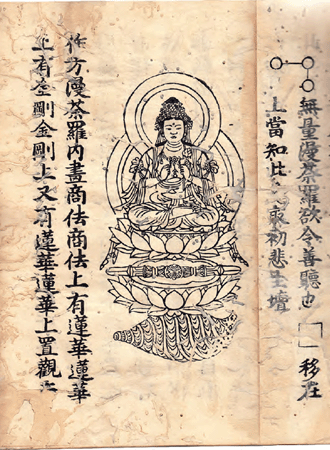 無量漫荼羅欲令善聽也「 」移在
上當知比 初悲生壇
作方漫荼羅内畫商佉商佉上有蓮華蓮華
上有金剛金剛上又有蓮華蓮華上置觀